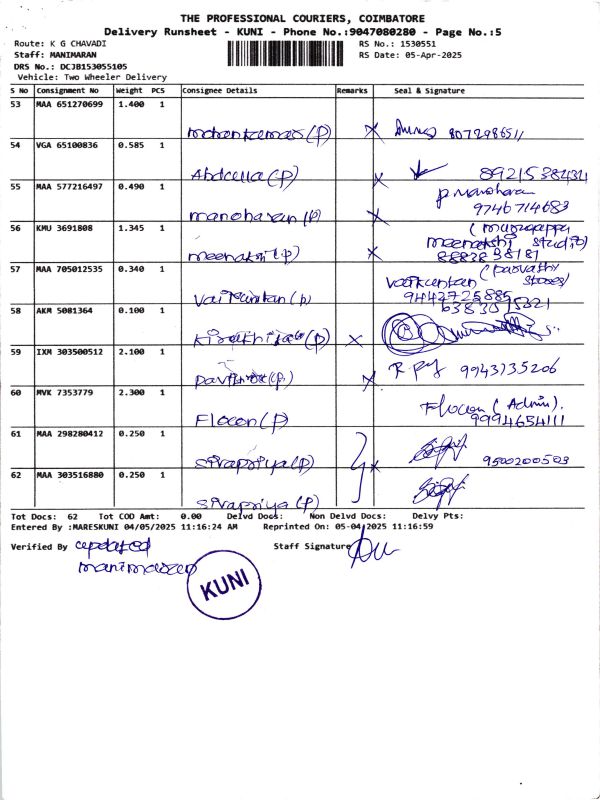 THE PROFESSIONAL COURIERS, COIMBATORE
Delivery Runsheet - KUNI - Phone No.:9047080280 - Page No.:5
Route: K G CHAVADI RS No.: 1530551
Staff: MANIMARAN RS Date: 05-Apr-2025
DRS No.: DCJB153055105
Vehicle: Two Wheeler Delivery
S No Consignment No Weight PCS Consignee Details Remarks Seal & Signature
53 MAA 651270699 1.400 1
mohankumar (p) x 8072986511
54 VGA 65100836 0.585 1
Abdulla (p) x
55 MAA 577216497 0.490 1 p. manoharan
manoharan (p) x 9746714683
56 KMU 3691808 1.345 1
meenakshi (p) x meenakshi
57 MAA 705012535 0.340 1
Vaikuntan (p) 9442725885
58 AKM 5081364 0.100 1
(p) x
59 IXM 303500512 2.100 1
(p) x 9943135206
60 MVK 7353779 2.300 1 Flocon (Admin).
Flocon (p) 9994654111
61 MAA 298280412 0.250 1
Sivapriya (p) x 9500200503
62 MAA 303516880 0.250 1
Sivapriya (p)
Tot Docs: 62 Tot COD Amt: 0.00 Delvd Docs: Non Delvd Docs: Delvy Pts:
Entered By :MARESKUNI 04/05/2025 11:16:24 AM Reprinted On: 05-04-2025 11:16:59
Verified By updated Staff Signature
manimaran
KUNI